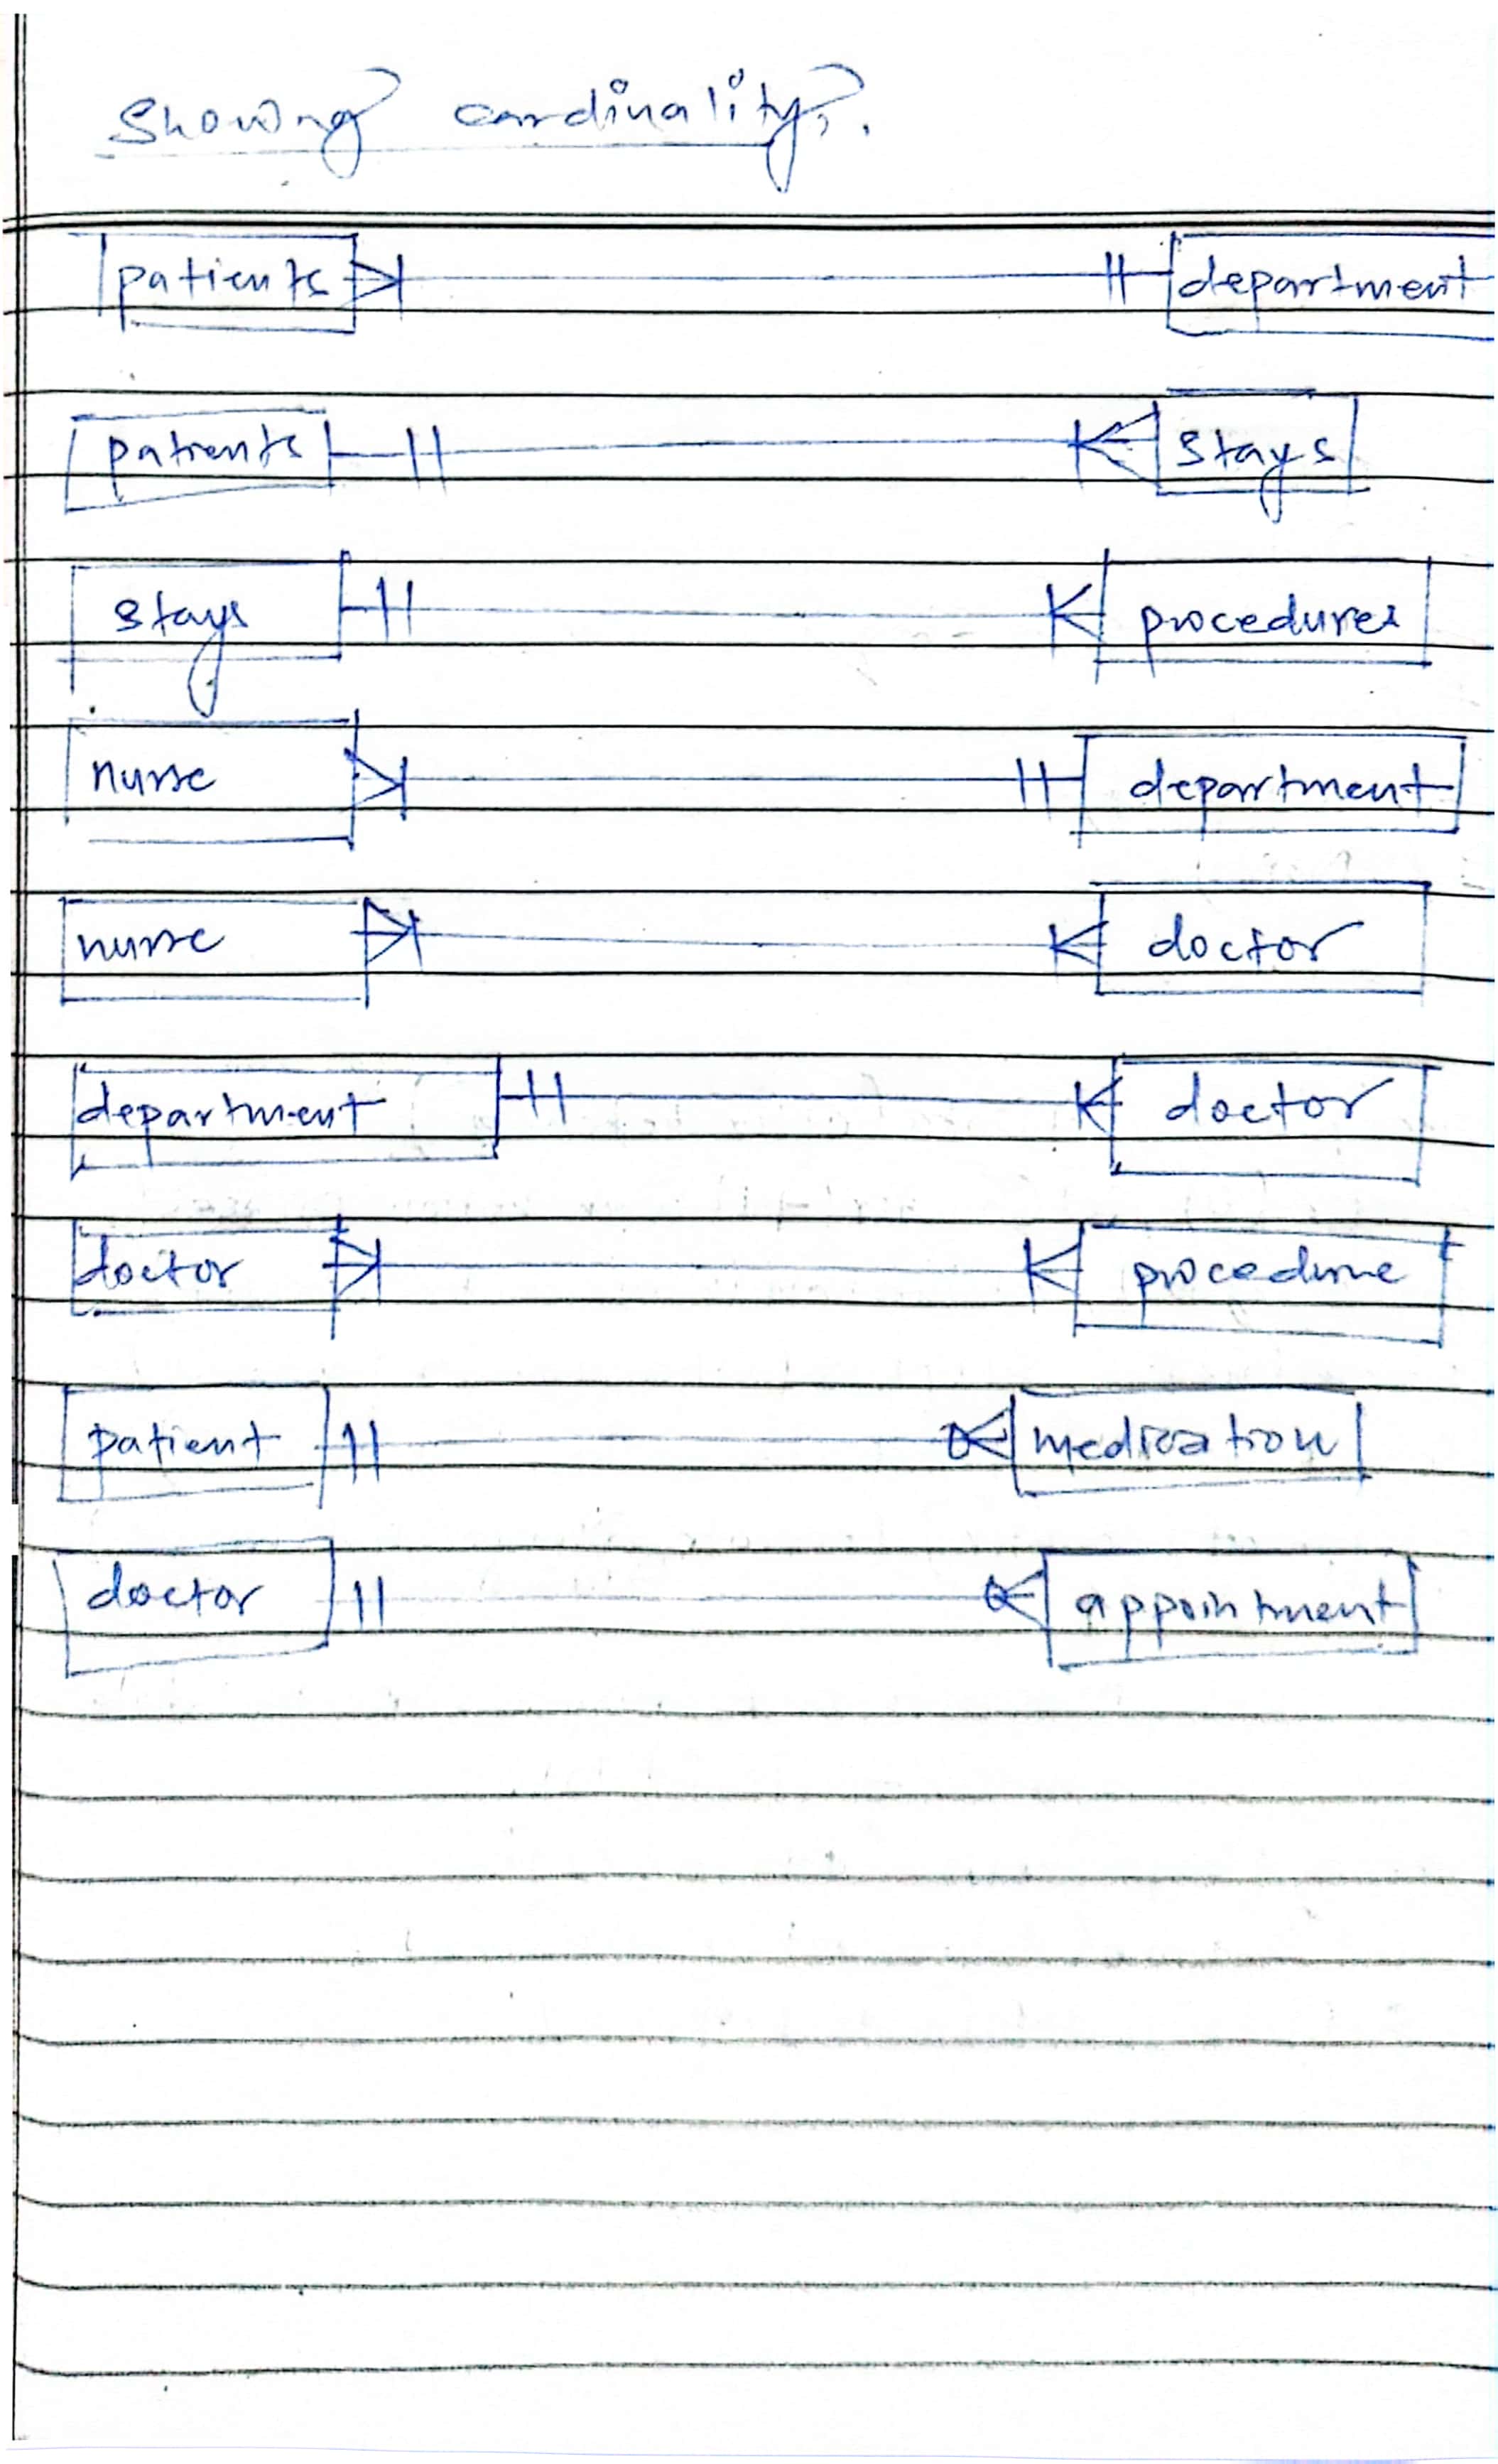 Showing cardinality.
patients department
patients stays
stays procedures
nurse department
nurse doctor
department doctor
doctor procedure
patient medication
doctor appointment